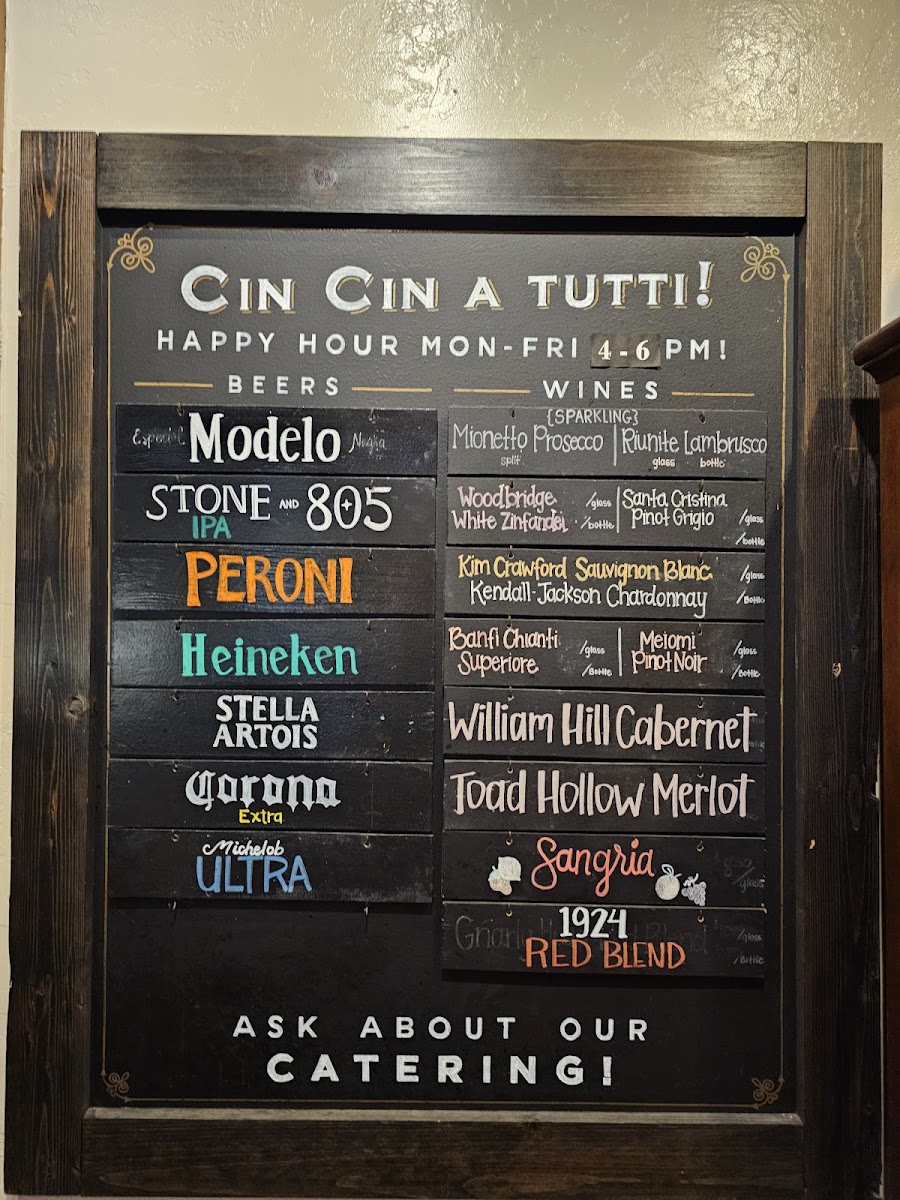 CIN CIN A TUTTI!
HAPPY HOUR MON-FRI 4-6 PM!
BEERS
Especial Modelo Negra
STONE AND 805
IPA
PERONI
Heineken
STELLA
ARTOIS
Corona
Extra
Michelob
ULTRA
WINES
{SPARKLING}
Mionetto Prosecco | Riunite Lambrusco
split glass bottle
Woodbridge /glass | Santa Cristina
White Zinfandel /bottle | Pinot Grigio /glass
/bottle
Kim Crawford Sauvignon Blanc /glass
Kendall-Jackson Chardonnay /Bottle
Banfi Chianti /glass | Meiomi /glass
Superiore /Bottle | Pinot Noir /Bottle
William Hill Cabernet
Toad Hollow Merlot
Sangria /glass
1924 /glass
RED BLEND /Bottle
ASK ABOUT OUR
CATERING!